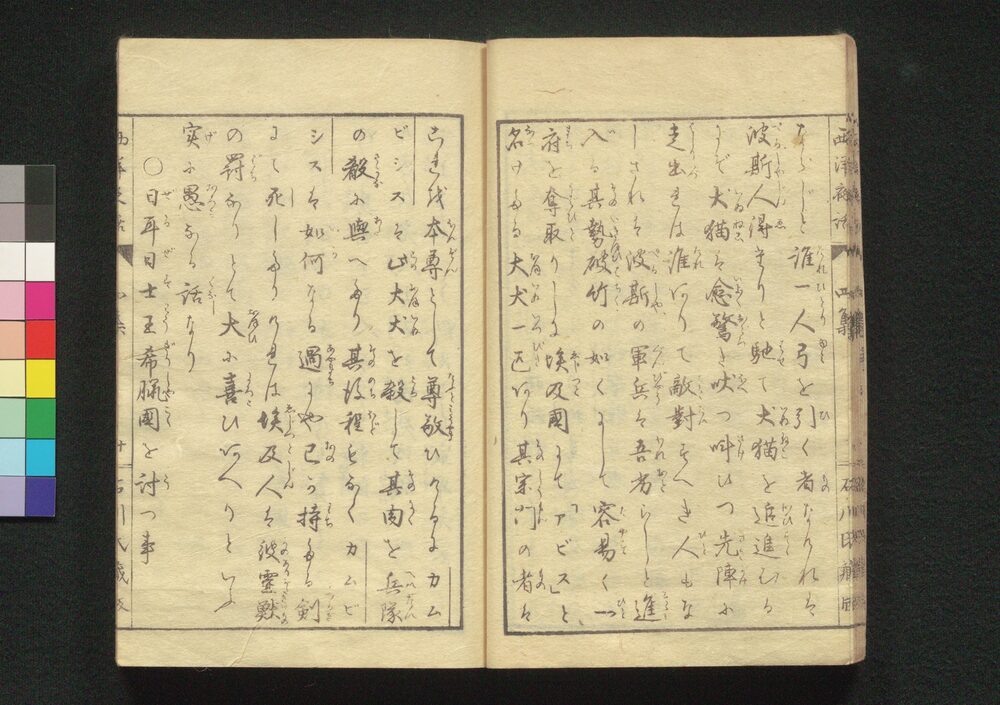 西洋夜話 四集
ならじと誰一人弓を引く者なければ
波斯人得たりと馳て犬猫を追進む
るまで犬猫は愈驚き吠つ呌ひつ先陣に
走出れは誰ありて敵對すへき人もな
しされは波斯の軍兵は吾劣らしと進
入る其勢破竹の如くにして容易く一
府を奪取りしに埃及國にて「アピス」と
名けたる大犬一疋あり其宗門の者は
これを本尊として尊敬ひけるにカム
ビシスは此大犬を殺して其肉を兵隊
の殽に與へたり其後程もなくカムビ
シスは如何なる過にや己か持たる剣
にて死したりけれは埃及人は彼霊獣
の罸なりとて大に喜ひあへりといふ
実に愚なる話なり
〇日耳曼士王希臘國を討つ事